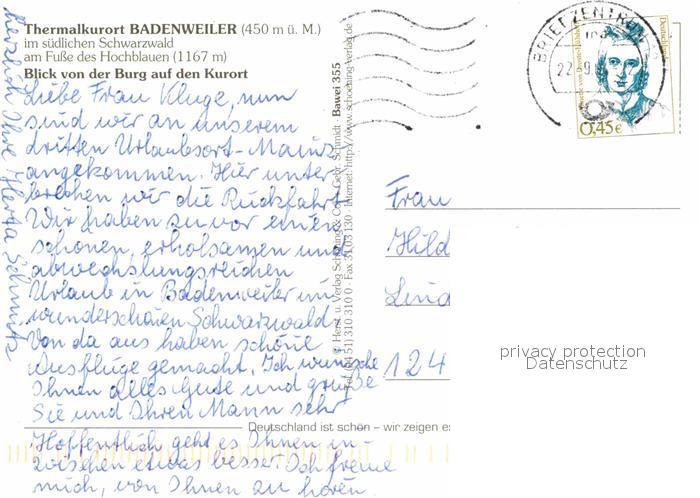 Thermalkurort BADENWEILER (450 m ü. M.)
im südlichen Schwarzwald
am Fuße des Hochblauen (1167 m)
Blick von der Burg auf den Kurort
Liebe Frau Kluge, nun
sind wir an unserem
dritten Urlaubsort - Mainz
angekommen. Hier unter
brechen wir die Rückfahrt
Wir haben zuvor einen
schönen, erholsamen und
abwechslungsreichen
Urlaub in Badenweiler im
wunderschönen Schwarzwald
Von da aus haben schöne
Ausflüge gemacht. Ich wünsche
Ihnen alles Gute und grüße
Sie und Ihren Mann sehr
herzlich Ihre Herta Schmitz
Hoffentlich geht es Ihnen in
zwischen etwas besser. Ich freue
mich, von Ihnen zu hören.
© Herst. u. Verlag Schöning & Co. + Gebr. Schmidt · Bawei 355
Tel. (0451) 310 310 0 · Fax 31 03 130 · Internet: http://www.schoening-verlag.de
Deutschland ist schön – wir zeigen es
BRIEFZENTRUM
22.9
Deutschland
Annette von Droste-Hülshoff
0,45€
Frau
Hild
Lind
124
privacy protection
Datenschutz